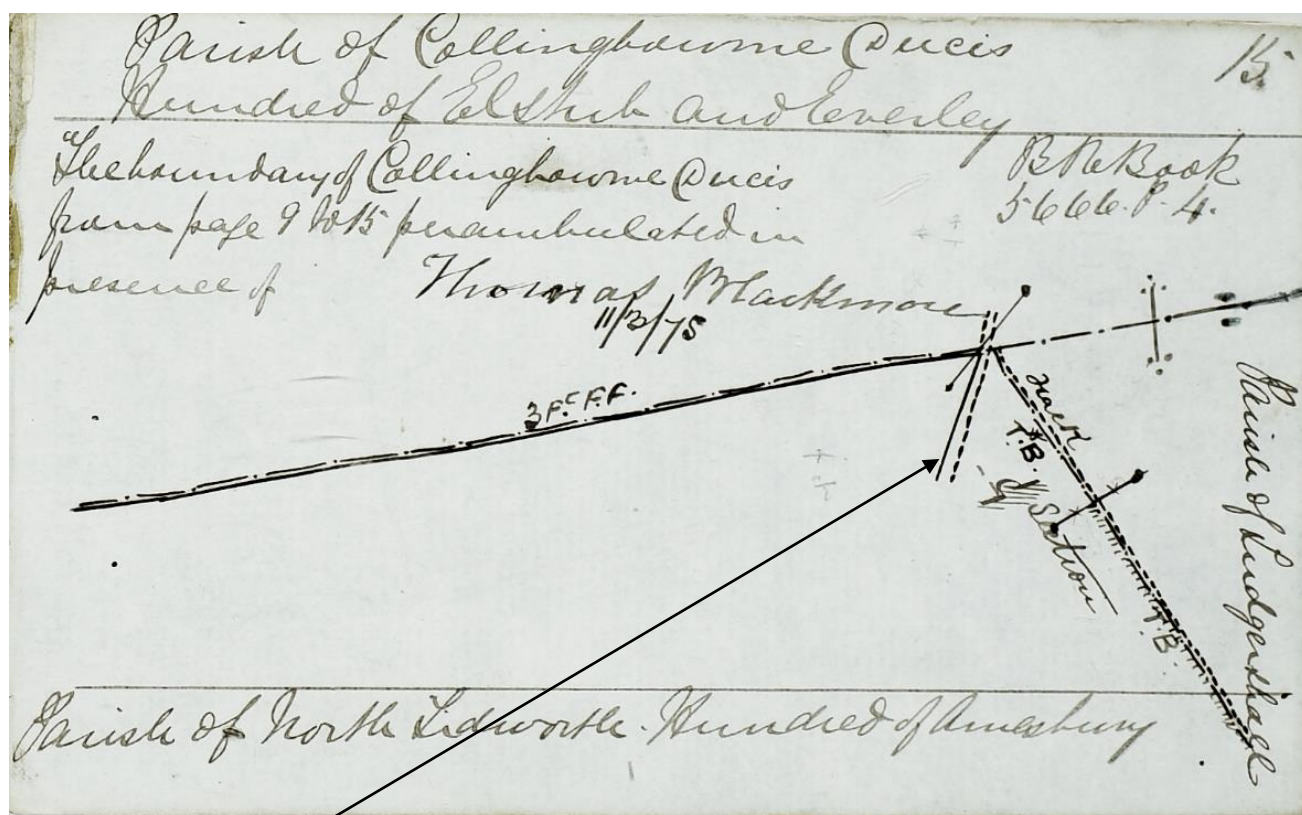 Parish of Collingbourne Ducis
15
Hundred of Elstub and Everley
The boundary of Collingbourne Ducis
from page 9 to 15 perambulated in
presence of Thomas Blackmore
11/3/75
B R Book
5666. P. 4.
3 Fc F.F.
Track
T.B.
Section
T.B.
Parish of Ludgershall
Parish of North Tidworth. Hundred of Amesbury